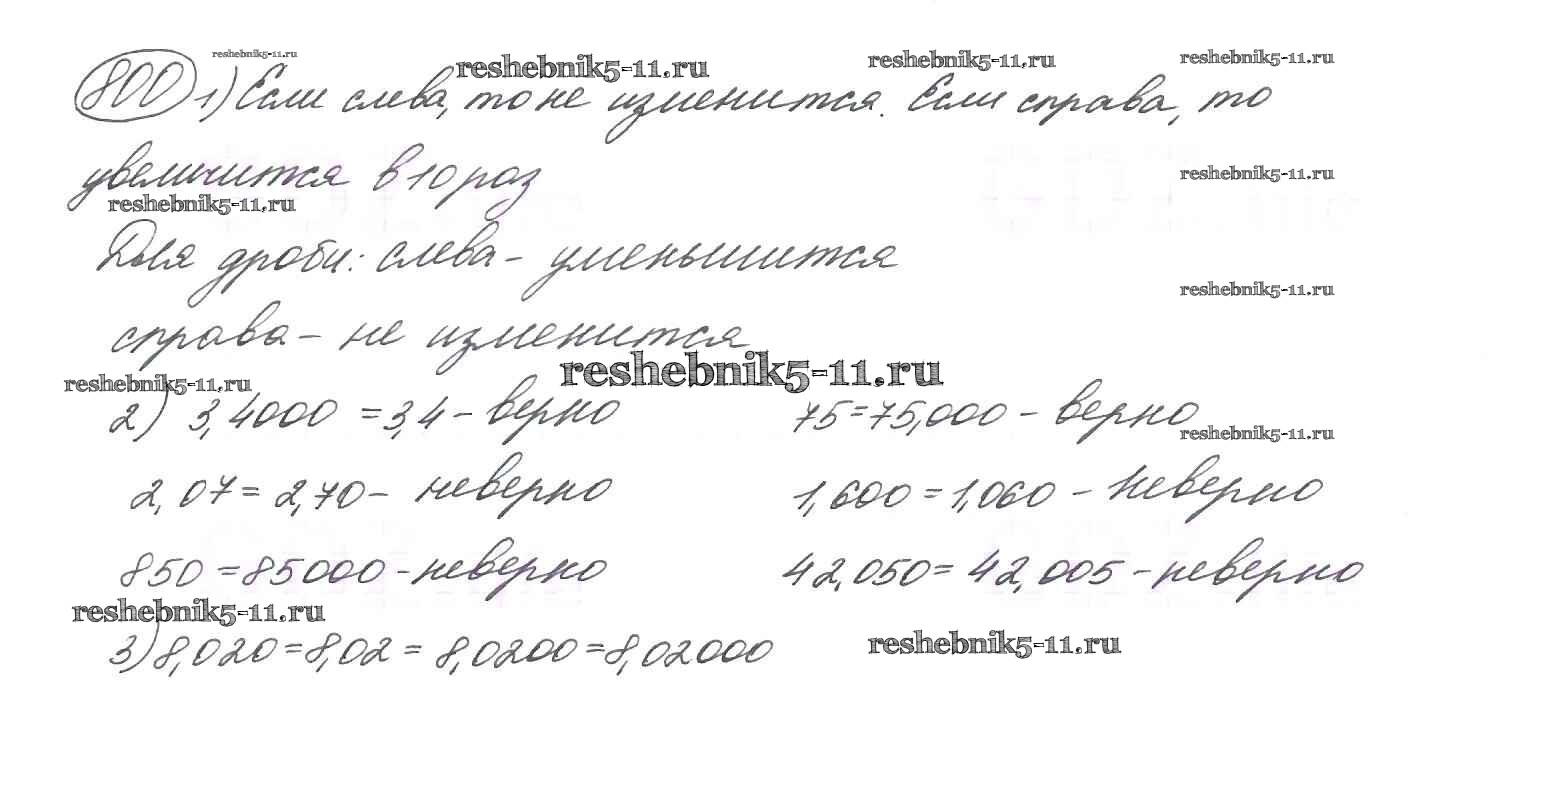 reshebnik5-11.ru
reshebnik5-11.ru
reshebnik5-11.ru
reshebnik5-11.ru
800 1) Если слева, то не изменится. Если справа, то
увеличится в 10 раз
reshebnik5-11.ru
reshebnik5-11.ru
Для дроби: слева - уменьшится
reshebnik5-11.ru
справа - не изменится
reshebnik5-11.ru
reshebnik5-11.ru
2) 3,4000 = 3,4 - верно 75 = 75,000 - верно
reshebnik5-11.ru
2,07 = 2,70 - неверно 1,600 = 1,060 - неверно
850 = 85000 - неверно 42,050 = 42,005 - неверно
reshebnik5-11.ru
3) 8,020 = 8,02 = 8,0200 = 8,02000
reshebnik5-11.ru